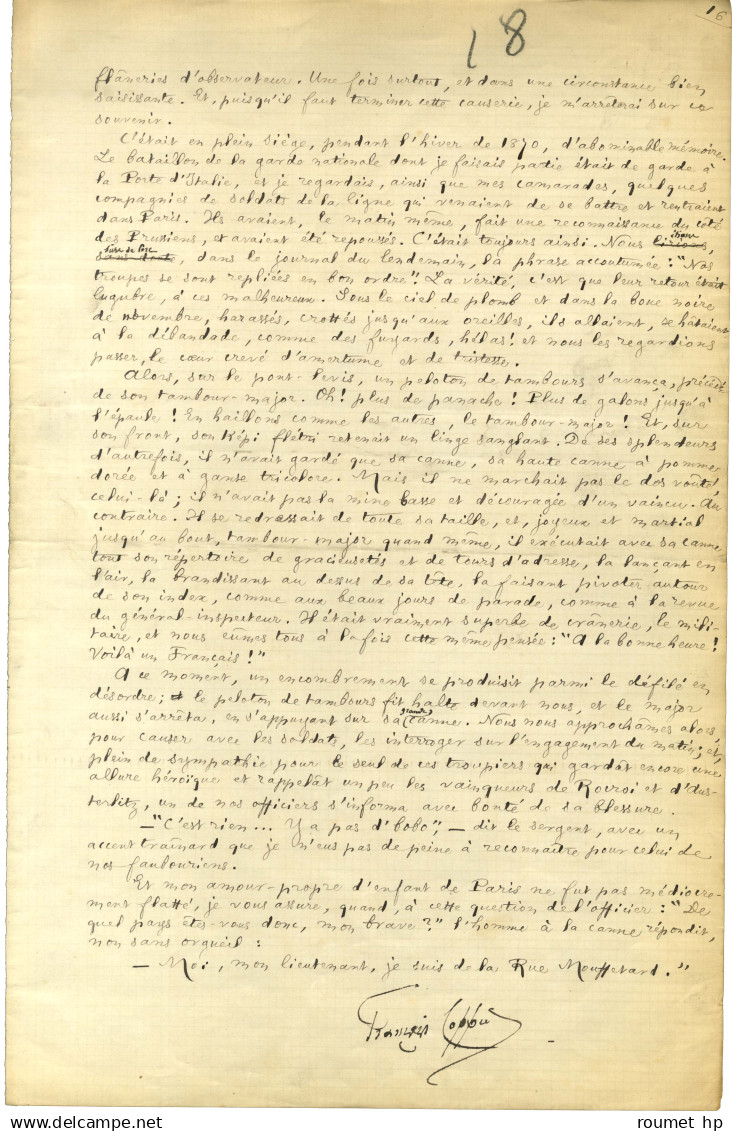 16
18
flâneries d'observateur. Une fois surtout, et dans une circonstance bien
saisissante. Et, puisqu'il faut terminer cette causerie, je m'arrêterai sur ce
souvenir.
C'était en plein siège, pendant l'hiver de 1870, d'abominable mémoire.
Le bataillon de la garde nationale dont je faisais partie était de garde à
la Porte d'Italie, et je regardais, ainsi que mes camarades, quelques
compagnies de soldats de la ligne qui venaient de se battre et rentraient
dans Paris. Ils avaient, le matin même, fait une reconnaissance du côté
des Prussiens, et avaient été repoussés. C'était toujours ainsi. Nous lirions,
sans doute, dans le journal du lendemain, la phrase accoutumée : "Nos
troupes se sont repliées en bon ordre". La vérité, c'est que leur retour était
lugubre, à ces malheureux. Sous le ciel de plomb et dans la boue noire
de novembre, harassés, crottés jusqu'aux oreilles, ils allaient, se hâtaient
à la débandade, comme des fuyards, hélas ! et nous les regardions
passer, le cœur crevé d'amertume et de tristesse.
Alors, sur le pont-levis, un peloton de tambours s'avança, précédé
de son tambour-major. Oh ! plus de panache ! Plus de galons jusqu'à
l'épaule ! En haillons comme les autres, le tambour-major ! Et, sur
son front, son képi flétri retenait un linge sanglant. De ses splendeurs
d'autrefois, il n'avait gardé que sa canne, sa haute canne à pomme
dorée et à ganse tricolore. Mais il ne marchait pas le dos voûté,
celui-là ; il n'avait pas la mine basse et découragée d'un vaincu. Au
contraire. Il se redressait de toute sa taille, et, joyeux et martial
jusqu'au bout, tambour-major quand même, il exécutait avec sa canne
tout son répertoire de gracieusetés et de tours d'adresse, la lançant en
l'air, la brandissant au dessus de sa tête, la faisant pivoter autour
de son index, comme aux beaux jours de parade, comme à la revue
du général-inspecteur. Il était vraiment superbe de crânerie, le mili-
taire, et nous eûmes tous à la fois cette même pensée : "A la bonne heure !
Voilà un Français !"
A ce moment, un encombrement se produisit parmi le défilé en
désordre ; le peloton de tambours fit halte devant nous, et le major
aussi s'arrêta, en s'appuyant sur sa grande canne. Nous nous approchâmes alors,
pour causer avec les soldats, les interroger sur l'engagement du matin ; et,
plein de sympathie pour le seul de ces troupiers qui gardât encore une
allure héroïque et rappelât un peu les vainqueurs de Rocroi et d'Aus-
terlitz, un de nos officiers s'informa avec bonté de sa blessure.
— "C'est rien... Y a pas d'bobo", — dit le sergent, avec un
accent traînard que je n'eus pas de peine à reconnaître pour celui de
nos faubouriens.
Et mon amour-propre d'enfant de Paris ne fut pas médiocre-
ment flatté, je vous assure, quand, à cette question de l'officier : "De
quel pays êtes-vous donc, mon brave ?" l'homme à la canne répondit,
non sans orgueil :
— Moi, mon lieutenant, je suis de la Rue Mouffetard."
François Coppée
roumet hp